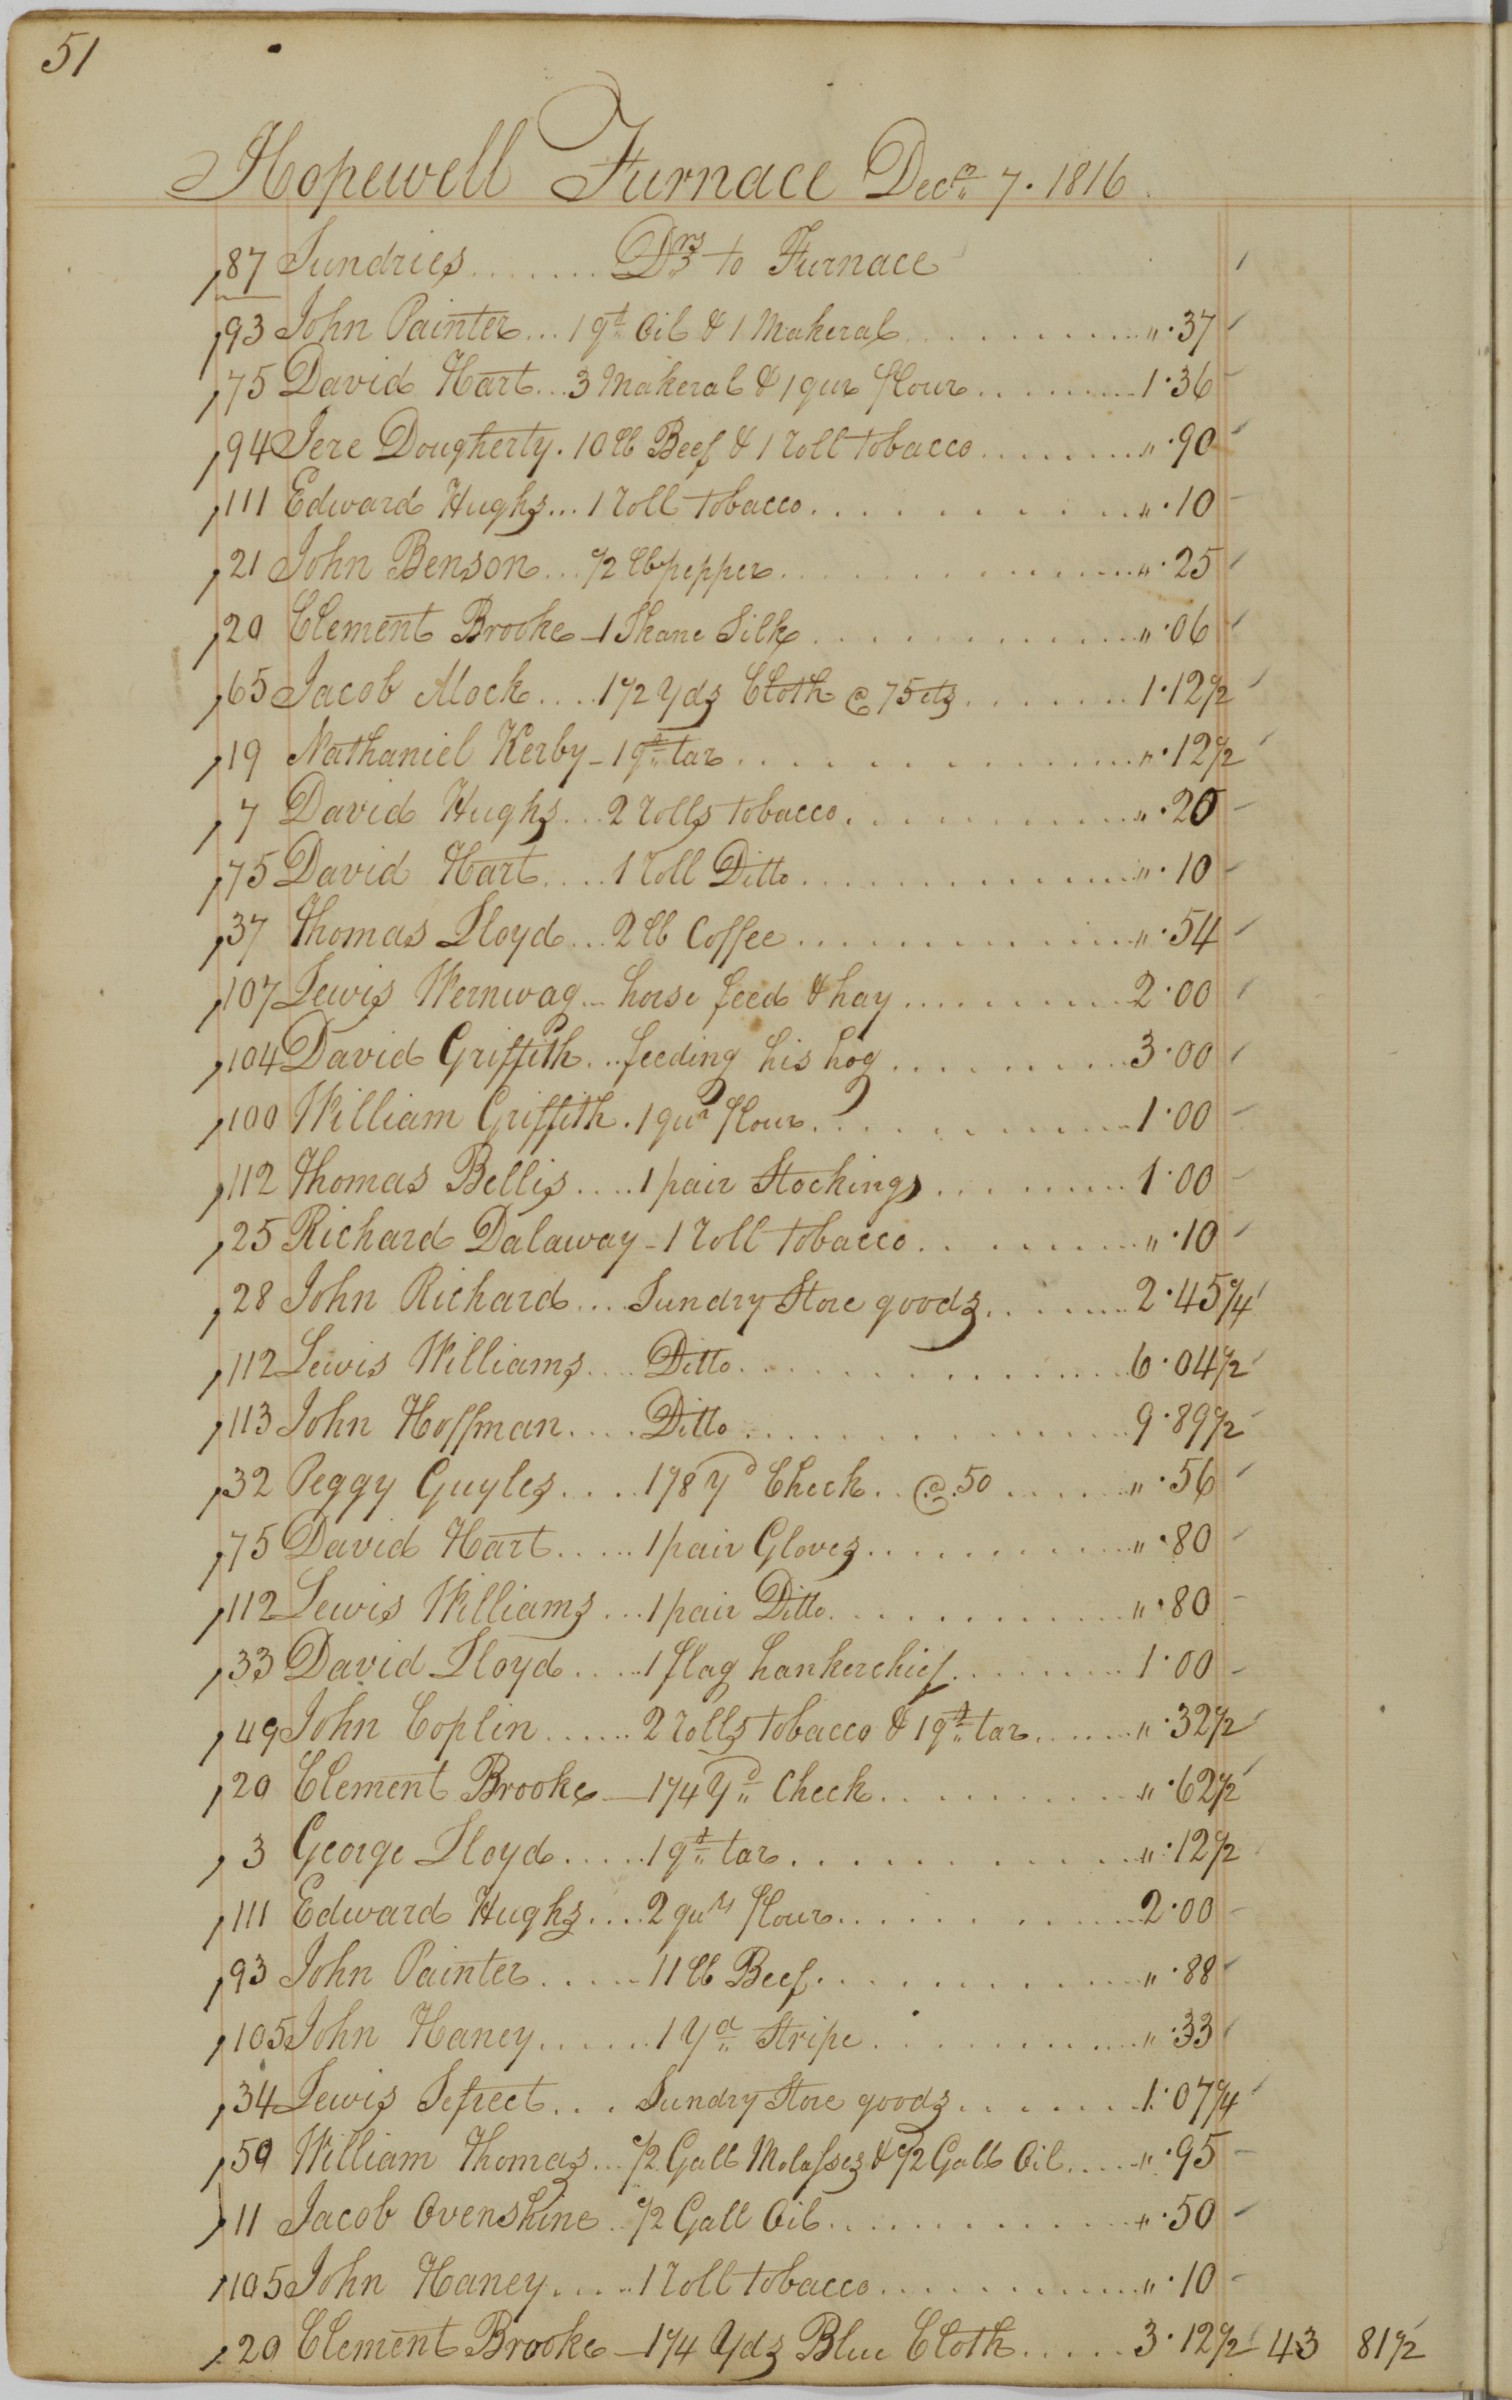 51
Hopewell Furnace Decr. 7. 1816
87 Sundries ....... Drs to Furnace
93 John Painter ... 1 qt. Oil & 1 Makeral ........ " . 37
75 David Hart ... 3 Makeral & 1 qur flour ........ 1 . 36
94 Jere Dougherty . 10 lb Beef & 1 roll tobacco ........ " . 90
111 Edward Hughs ... 1 roll tobacco ........ " . 10
21 John Benson ... 1/2 lb pepper ........ " . 25
20 Clement Brooke – 1 Skane Silk ........ " . 06
65 Jacob Mock .... 1 1/2 Yds Cloth @ 75 cts ........ 1 . 12 1/2
19 Nathaniel Kerby – 1 qt. tar ........ " . 12 1/2
7 David Hughs ... 2 rolls tobacco ........ " . 20
75 David Hart .... 1 roll Ditto ........ " . 10
37 Thomas Lloyd ... 2 lb Coffee ........ " . 54
107 Lewis Wernwag – horse feed & hay ........ 2 . 00
104 David Griffith ... feeding his hog ........ 3 . 00
100 William Griffith . 1 qur flour ........ 1 . 00
112 Thomas Bellis .... 1 pair Stockings ........ 1 . 00
25 Richard Dalaway – 1 roll tobacco ........ " . 10
28 John Richard .... Sundry Store goods ........ 2 . 45 1/4
112 Lewis Williams .... Ditto ........ 6 . 04 1/2
113 John Hoffman .... Ditto ........ 9 . 89 1/2
32 Peggy Guyles .... 1 1/8 Yd Check .. @ .50 ...... " . 56
75 David Hart ..... 1 pair Gloves ........ " . 80
112 Lewis Williams ... 1 pair Ditto ........ " . 80
33 David Lloyd ..... 1 flag hankerchief ........ 1 . 00
49 John Coplin ...... 2 rolls tobacco & 1 qt. tar ...... " . 32 1/2
20 Clement Brooke – 1 1/4 Yd. Check ........ " . 62 1/2
3 George Lloyd ..... 1 qt. tar ........ " . 12 1/2
111 Edward Hughs .... 2 qurs flour ........ 2 . 00
93 John Painter ..... 11 lb Beef ........ " . 88
105 John Haney ...... 1 Yd. Stripe ........ " . 33
34 Lewis Sefreet ... Sundry Store goods ...... 1 . 07 1/4
50 William Thomas ... 1/2 Gall Molasses & 1/2 Gall Oil .... " . 95
11 Jacob Ovenshine .. 1/2 Gall Oil ........ " . 50
105 John Haney ..... 1 roll tobacco ........ " . 10
20 Clement Brooke – 1 1/4 Yds Blue Cloth ..... 3 . 12 1/2 43 81 1/2